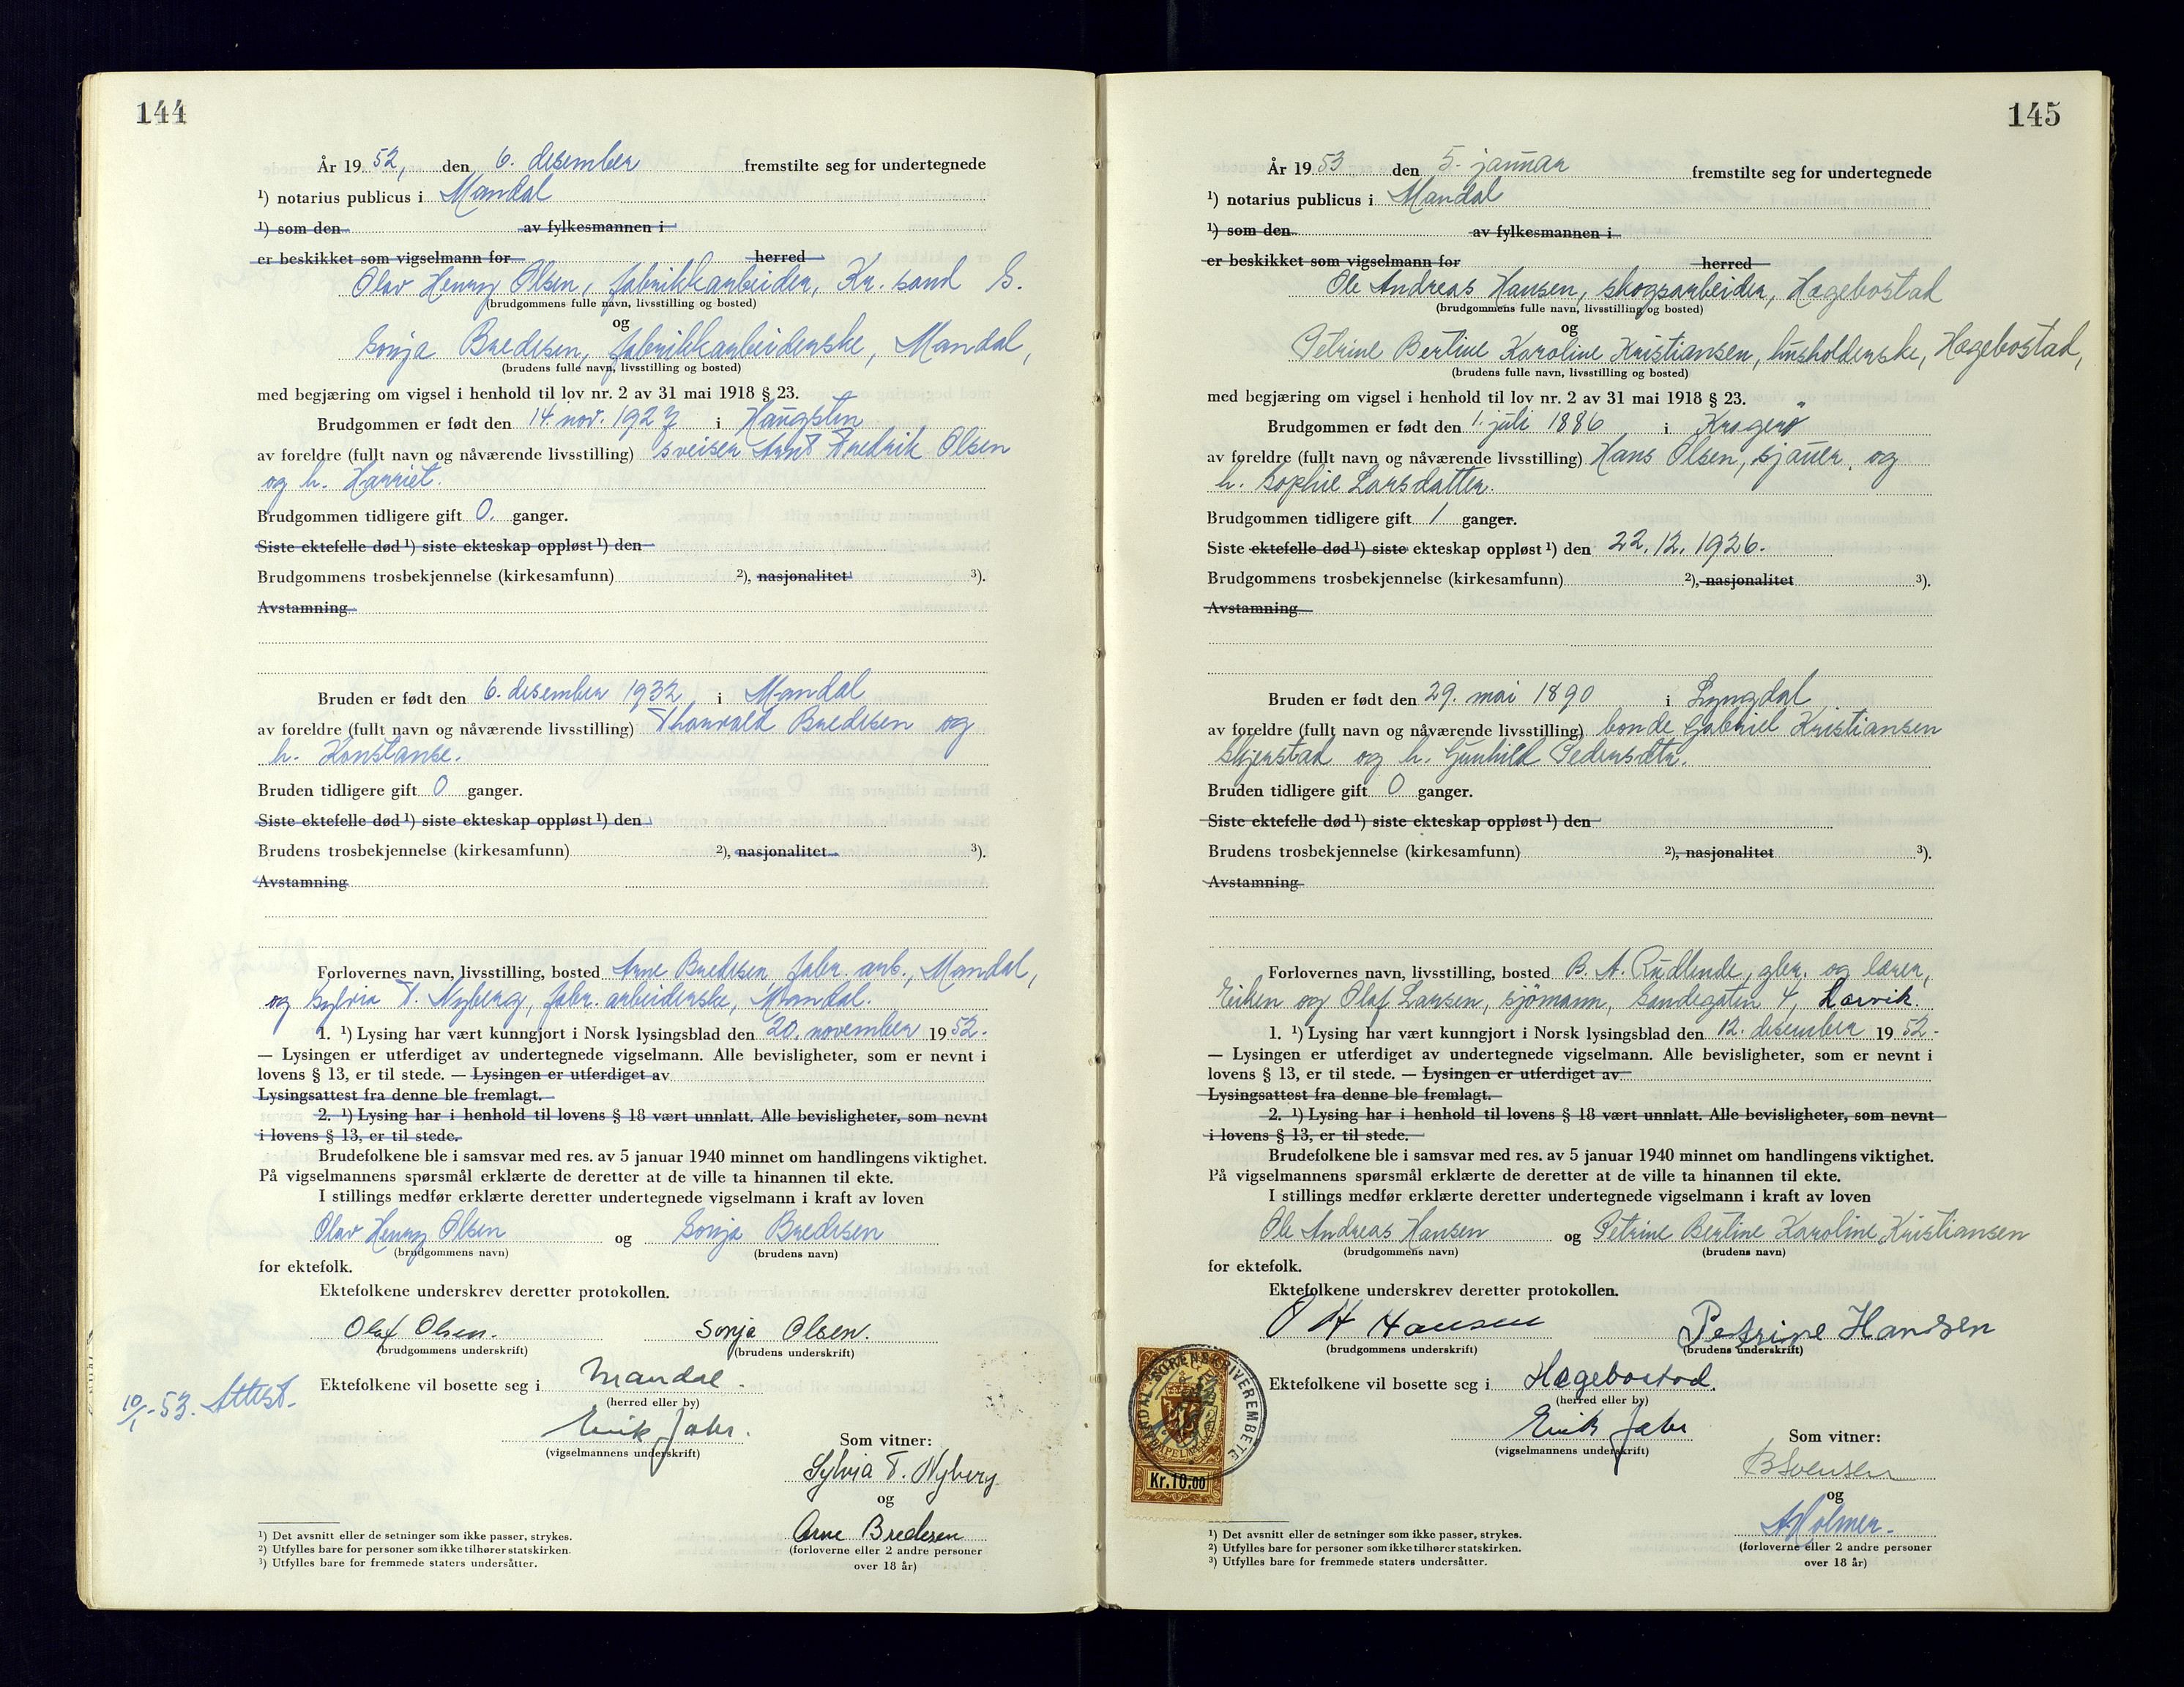 144
År 19 52, den 6. desember fremstilte seg for undertegnede
¹) notarius publicus i Mandal
¹) som den av fylkesmannen i
er beskikket som vigselmann for herred
Olav Henry Olsen, fabrikkarbeider, Kr. sand S.
(brudgommens fulle navn, livsstilling og bosted)
og
Sonja Bredesen, fabrikkarbeiderske, Mandal,
(brudens fulle navn, livsstilling og bosted)
med begjæring om vigsel i henhold til lov nr. 2 av 31 mai 1918 § 23.
Brudgommen er født den 14. nov. 1927 i
av foreldre (fullt navn og nåværende livsstilling) sveiser Arnt Fredrik Olsen
og h. Harriet.
Brudgommen tidligere gift 0. ganger.
Siste ektefelle død ¹) siste ekteskap oppløst ¹) den
Brudgommens trosbekjennelse (kirkesamfunn) ²), nasjonalitet ³).
Avstamning
Bruden er født den 6. desember 1932 i Mandal
av foreldre (fullt navn og nåværende livsstilling) Thorvald Bredesen og
h. Konstanse.
Bruden tidligere gift 0 ganger.
Siste ektefelle død ¹) siste ekteskap oppløst ¹) den
Brudens trosbekjennelse (kirkesamfunn) ²), nasjonalitet ³).
Avstamning
Forlovernes navn, livsstilling, bosted Arne Bredesen, fabr. arb., Mandal,
og Sylvia T. Nyberg, fabr. arbeiderske, Mandal.
1. ¹) Lysing har vært kunngjort i Norsk lysingsblad den 20. november 19 52.
— Lysingen er utferdiget av undertegnede vigselmann. Alle bevisligheter, som er nevnt i
lovens § 13, er til stede. — Lysingen er utferdiget av
Lysingsattest fra denne ble fremlagt.
2. ¹) Lysing har i henhold til lovens § 18 vært unnlatt. Alle bevisligheter, som nevnt
i lovens § 13, er til stede.
Brudefolkene ble i samsvar med res. av 5 januar 1940 minnet om handlingens viktighet.
På vigselmannens spørsmål erklærte de deretter at de ville ta hinannen til ekte.
I stillings medfør erklærte deretter undertegnede vigselmann i kraft av loven
Olav Henry Olsen og Sonja Bredesen
(brudgommens navn) (brudens navn)
for ektefolk.
Ektefolkene underskrev deretter protokollen.
Olaf Olsen. Sonja Olsen.
(brudgommens underskrift) (brudens underskrift)
10/1-53. Attest.
Ektefolkene vil bosette seg i Mandal.
(herred eller by)
Erik Jahr.
(vigselmannens underskrift)
Som vitner:
Sylvia T. Nyberg
og
Arne Bredesen
(forloverne eller 2 andre personer
over 18 år)
¹) Det avsnitt eller de setninger som ikke passer, strykes.
²) Utfylles bare for personer som ikke tilhører statskirken.
³) Utfylles bare for fremmede staters undersåtter.
145
År 19 53 den 5. januar fremstilte seg for undertegnede
¹) notarius publicus i Mandal
¹) som den av fylkesmannen i
er beskikket som vigselmann for herred
Ole Andreas Hansen, skogsarbeider, Hægebostad
(brudgommens fulle navn, livsstilling og bosted)
og
Petrine Bertine Karoline Kristiansen, husholderske, Hægebostad,
(brudens fulle navn, livsstilling og bosted)
med begjæring om vigsel i henhold til lov nr. 2 av 31 mai 1918 § 23.
Brudgommen er født den 1. juli 1886 i Kragerö
av foreldre (fullt navn og nåværende livsstilling) Hans Olsen, sjauer, og
h. Sophie Larsdatter.
Brudgommen tidligere gift 1 ganger.
Siste ektefelle død ¹) siste ekteskap oppløst ¹) den 22.12.1926.
Brudgommens trosbekjennelse (kirkesamfunn) ²), nasjonalitet ³).
Avstamning
Bruden er født den 29. mai 1890 i Lyngdal
av foreldre (fullt navn og nåværende livsstilling) bonde Gabriel Kristiansen
Skjerstad og h. Gunhild Pedersdtr.
Bruden tidligere gift 0 ganger.
Siste ektefelle død ¹) siste ekteskap oppløst ¹) den
Brudens trosbekjennelse (kirkesamfunn) ²), nasjonalitet ³).
Avstamning
Forlovernes navn, livsstilling, bosted B. A. Rudlende, gbr. og lærer,
Eiken og Olaf Larsen, sjömann, Sandegaten 4, Larvik.
1. ¹) Lysing har vært kunngjort i Norsk lysingsblad den 12. desember 19 52.
— Lysingen er utferdiget av undertegnede vigselmann. Alle bevisligheter, som er nevnt i
lovens § 13, er til stede. — Lysingen er utferdiget av
Lysingsattest fra denne ble fremlagt.
2. ¹) Lysing har i henhold til lovens § 18 vært unnlatt. Alle bevisligheter, som nevnt
i lovens § 13, er til stede.
Brudefolkene ble i samsvar med res. av 5 januar 1940 minnet om handlingens viktighet.
På vigselmannens spørsmål erklærte de deretter at de ville ta hinannen til ekte.
I stillings medfør erklærte deretter undertegnede vigselmann i kraft av loven
Ole Andreas Hansen og Petrine Bertine Karoline Kristiansen
(brudgommens navn) (brudens navn)
for ektefolk.
Ektefolkene underskrev deretter protokollen.
O A Hansen Petrine Hansen
(brudgommens underskrift) (brudens underskrift)
Ektefolkene vil bosette seg i Hægebostad.
(herred eller by)
Erik Jahr
(vigselmannens underskrift)
MANDAL SORENSKRIVEREMBETE
Kr. 10.00
Som vitner:
B Svensen
og
A Holmer.
(forloverne eller 2 andre personer
over 18 år)
¹) Det avsnitt eller de setninger som ikke passer, strykes.
²) Utfylles bare for personer som ikke tilhører statskirken.
³) Utfylles bare for fremmede staters undersåtter.